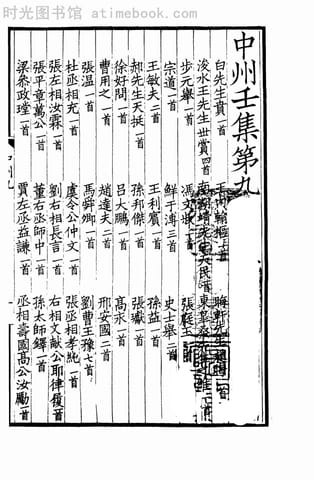 时光图书馆 atimebook.com
中州壬集第九
白先生賁一首
浚水王先生世賞四首
步元舉一首 馮文叔一首 張庭玉
宗道一首 鮮于溥三首 史士舉二首
王敏夫二首 王利賓一首 孫益一首
郝先生天挺一首 孫邦傑一首 張瓛一首
徐好問一首 呂大鵬一首 高永一首
曹用之一首 趙達夫二首 邢安國二首
張温一首 馬舜卿一首 劉曹王豫七首
杜丞相充一首 虞令公仲文一首 張丞相孝純一首
張左相汝霖一首 劉右相長言一首 右相文獻公耶律履一首
張平章萬公一首 董右丞師中一首 孫太師鐸一首
梁叅政瑝一首 賈左丞益謙一首 丞相壽國高公汝勵一首